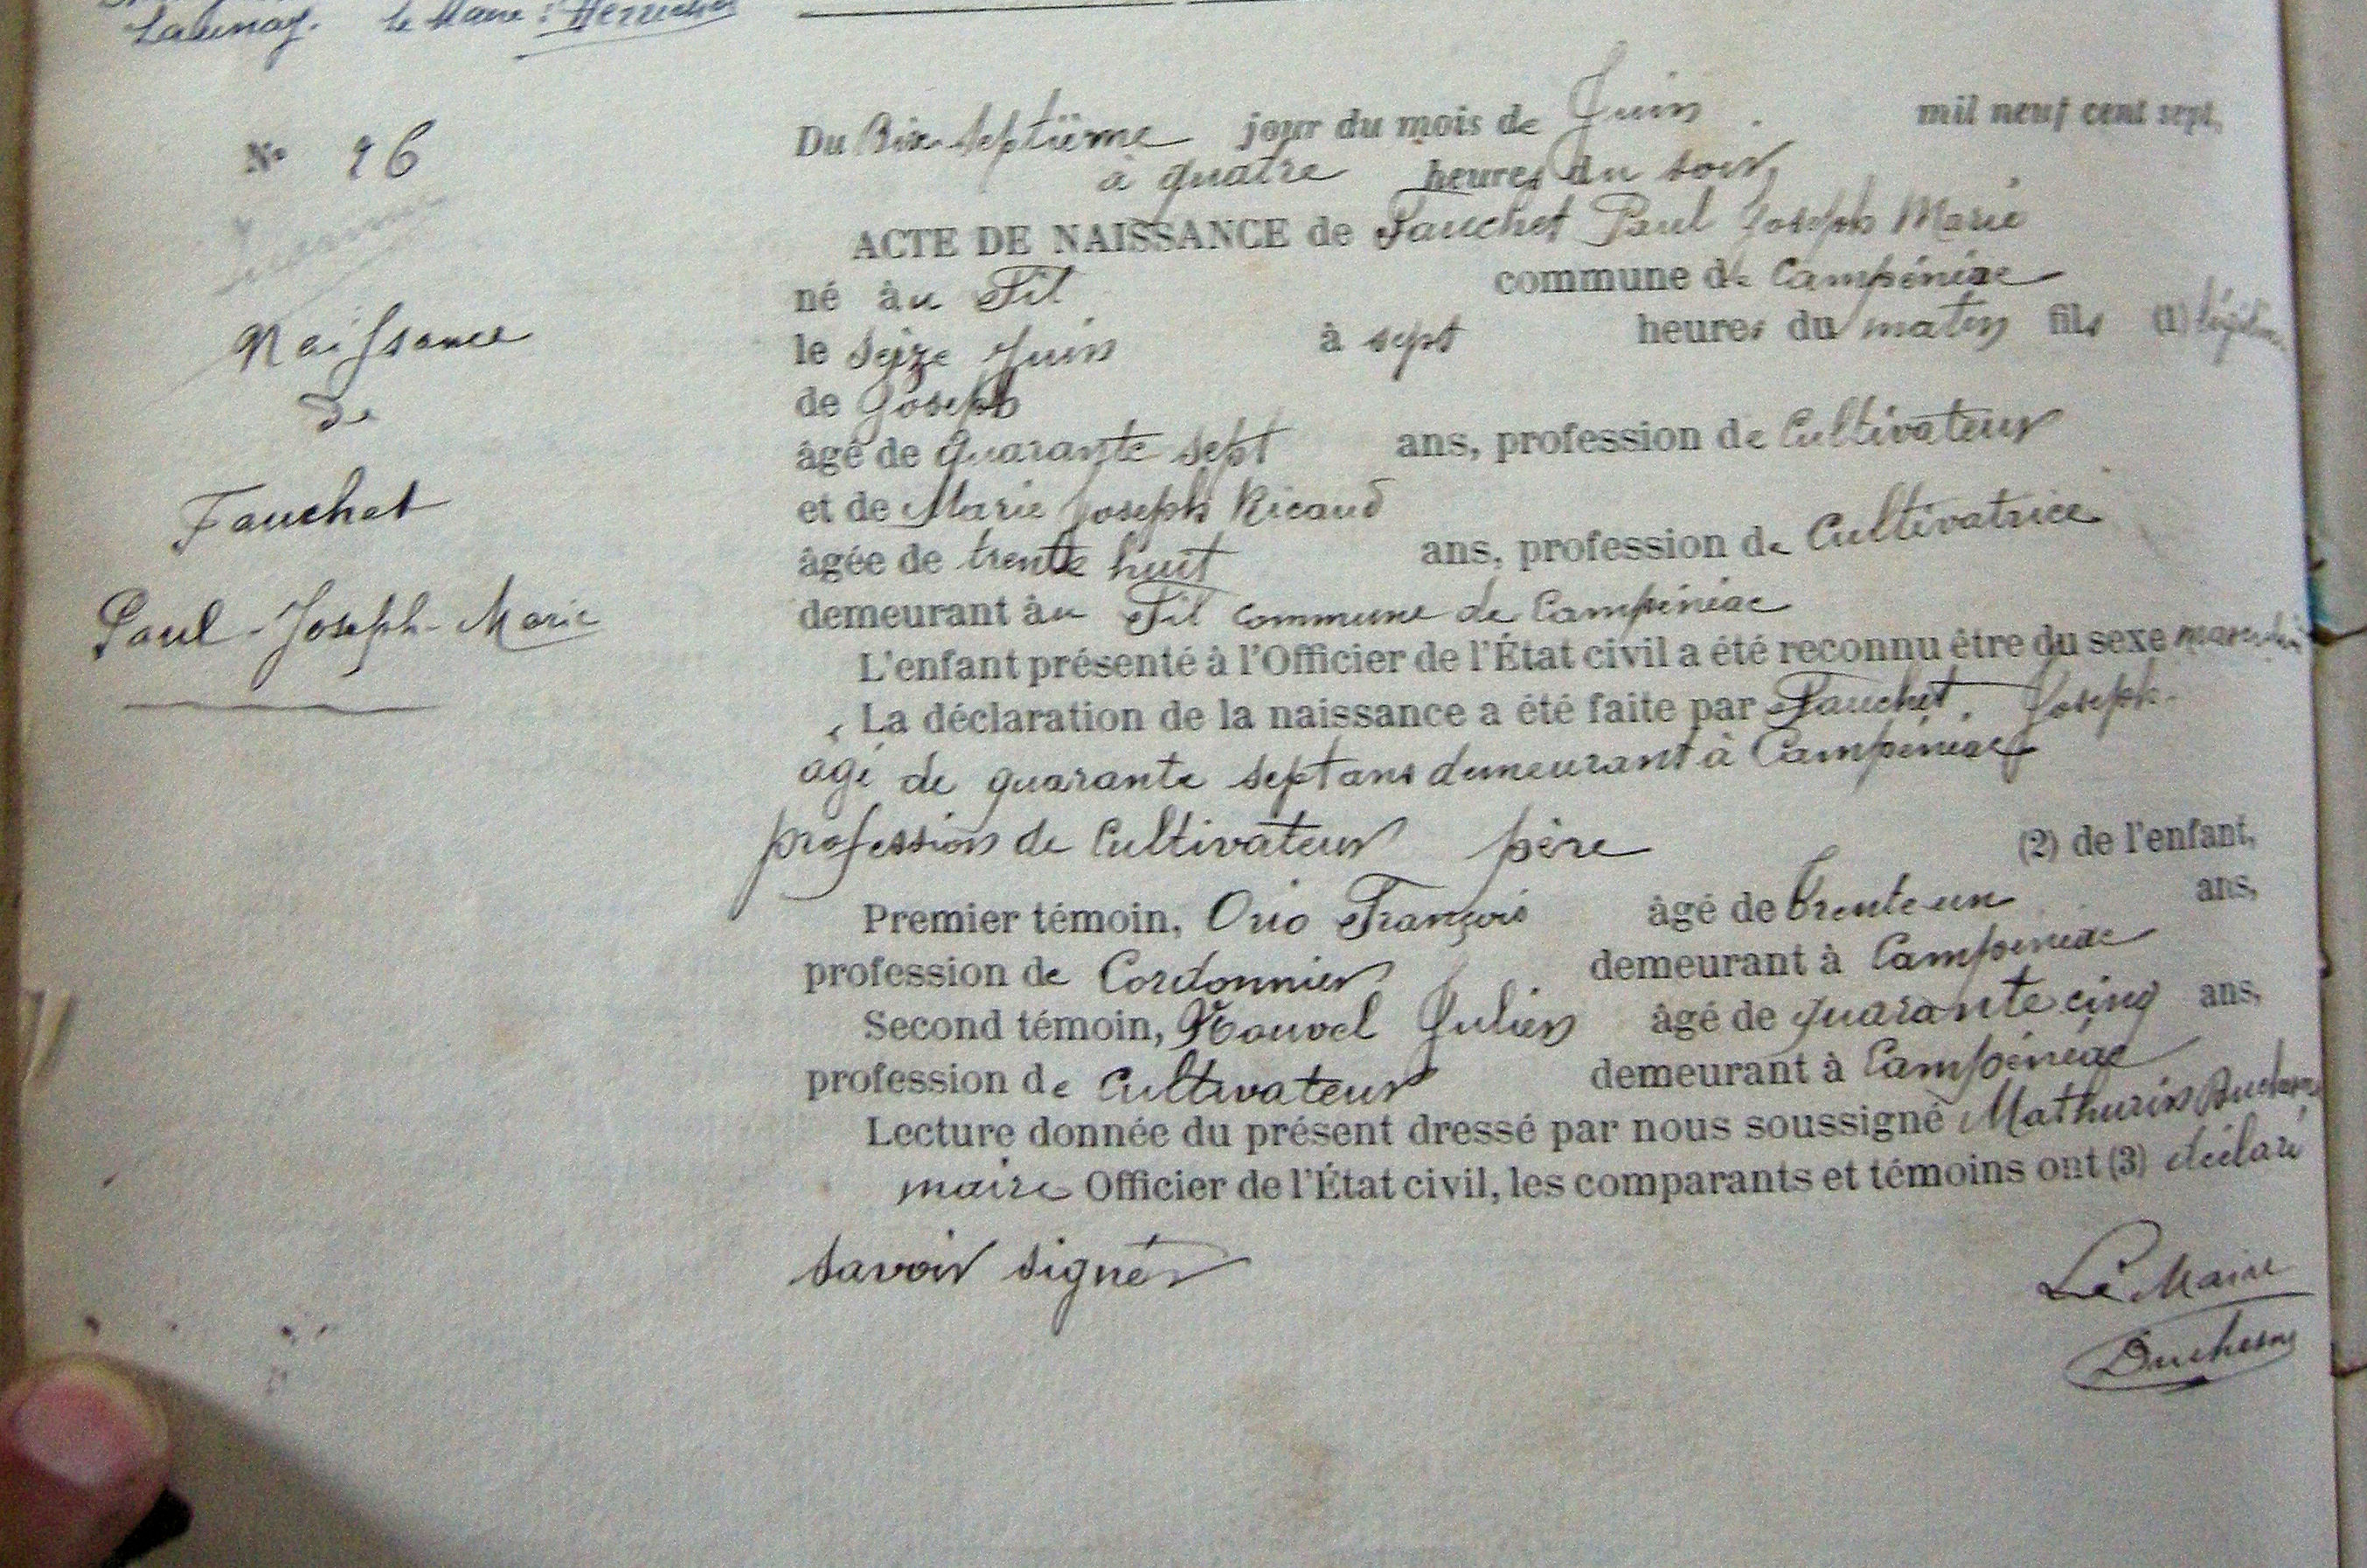 Launay. le Maire :
Nº 26
Du Dix-Septième jour du mois de Juin mil neuf cent sept,
à quatre heures du soir,
ACTE DE NAISSANCE de Fauchet Paul Joseph Marie
né à u Fil commune de Campénéac
Naissance
le Seize Juin à sept heures du matin fils (1) légitime
de
de Joseph
âgé de quarante sept ans, profession de Cultivateur
Fauchet
et de Marie Joseph Ricaud
âgée de trente huit ans, profession de Cultivatrice
Paul-Joseph-Marie
demeurant à u Fil commune de Campénéac
L'enfant présenté à l'Officier de l'État civil a été reconnu être du sexe masculin
La déclaration de la naissance a été faite par Fauchet, Joseph.
âgé de quarante sept ans demeurant à Campénéac
profession de Cultivateur père (2) de l'enfant,
Premier témoin, Orio François âgé de trente un ans,
profession de Cordonnier demeurant à Campénéac
Second témoin, Nouvel Julien âgé de quarante cinq ans,
profession de Cultivateur demeurant à Campénéac
Lecture donnée du présent dressé par nous soussigné Mathurin Duchesne,
maire Officier de l'État civil, les comparants et témoins ont (3) déclaré
savoir signer
Le Maire
Duchesne